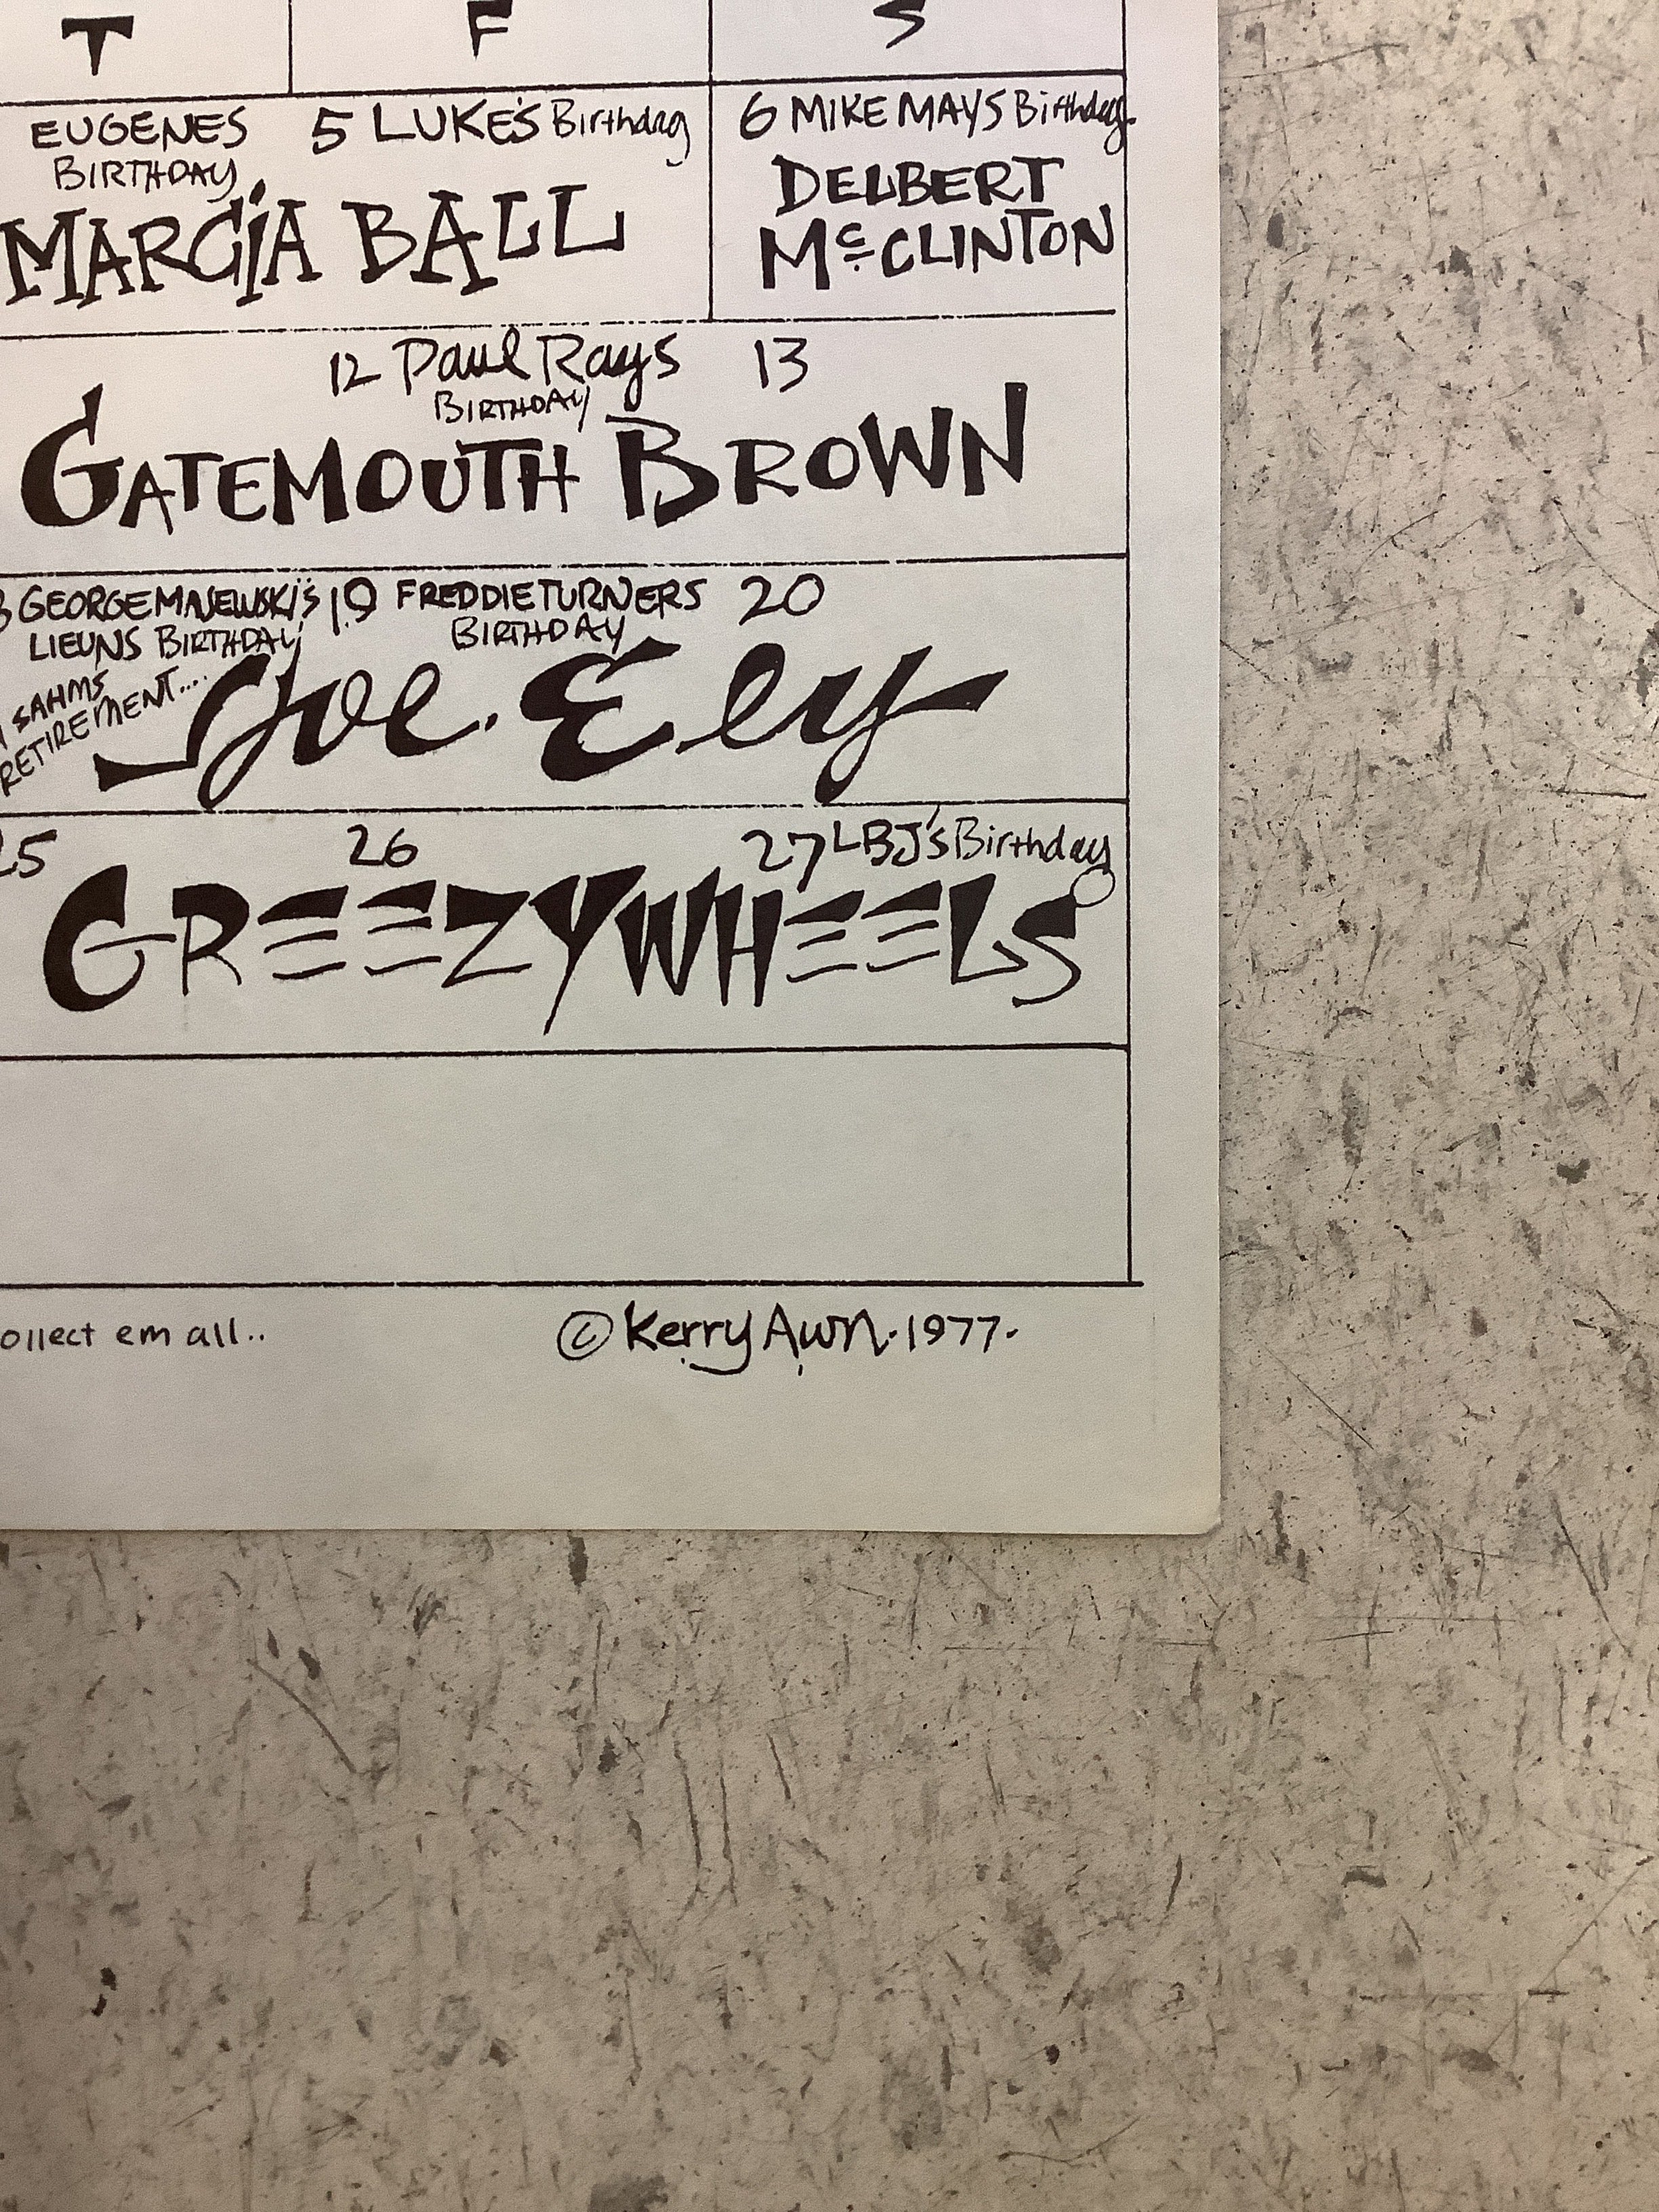 T F S
EUGENES 5 LUKE'S Birthday 6 MIKE MAYS Birthday.
BIRTHDAY
MARCIA BALL
DELBERT
McCLINTON
12 Paul Rays 13
BIRTHDAY
GATEMOUTH BROWN
GEORGE MAJEWSKI'S 19 FREDDIE TURNERS 20
LIEUNS BIRTHDAY BIRTHDAY
SAHMS
RETIREMENT....
Joe. Ely
25 26 27 LBJ's Birthday
GREEZY WHEELS
ollect em all..
© Kerry Awn. 1977.